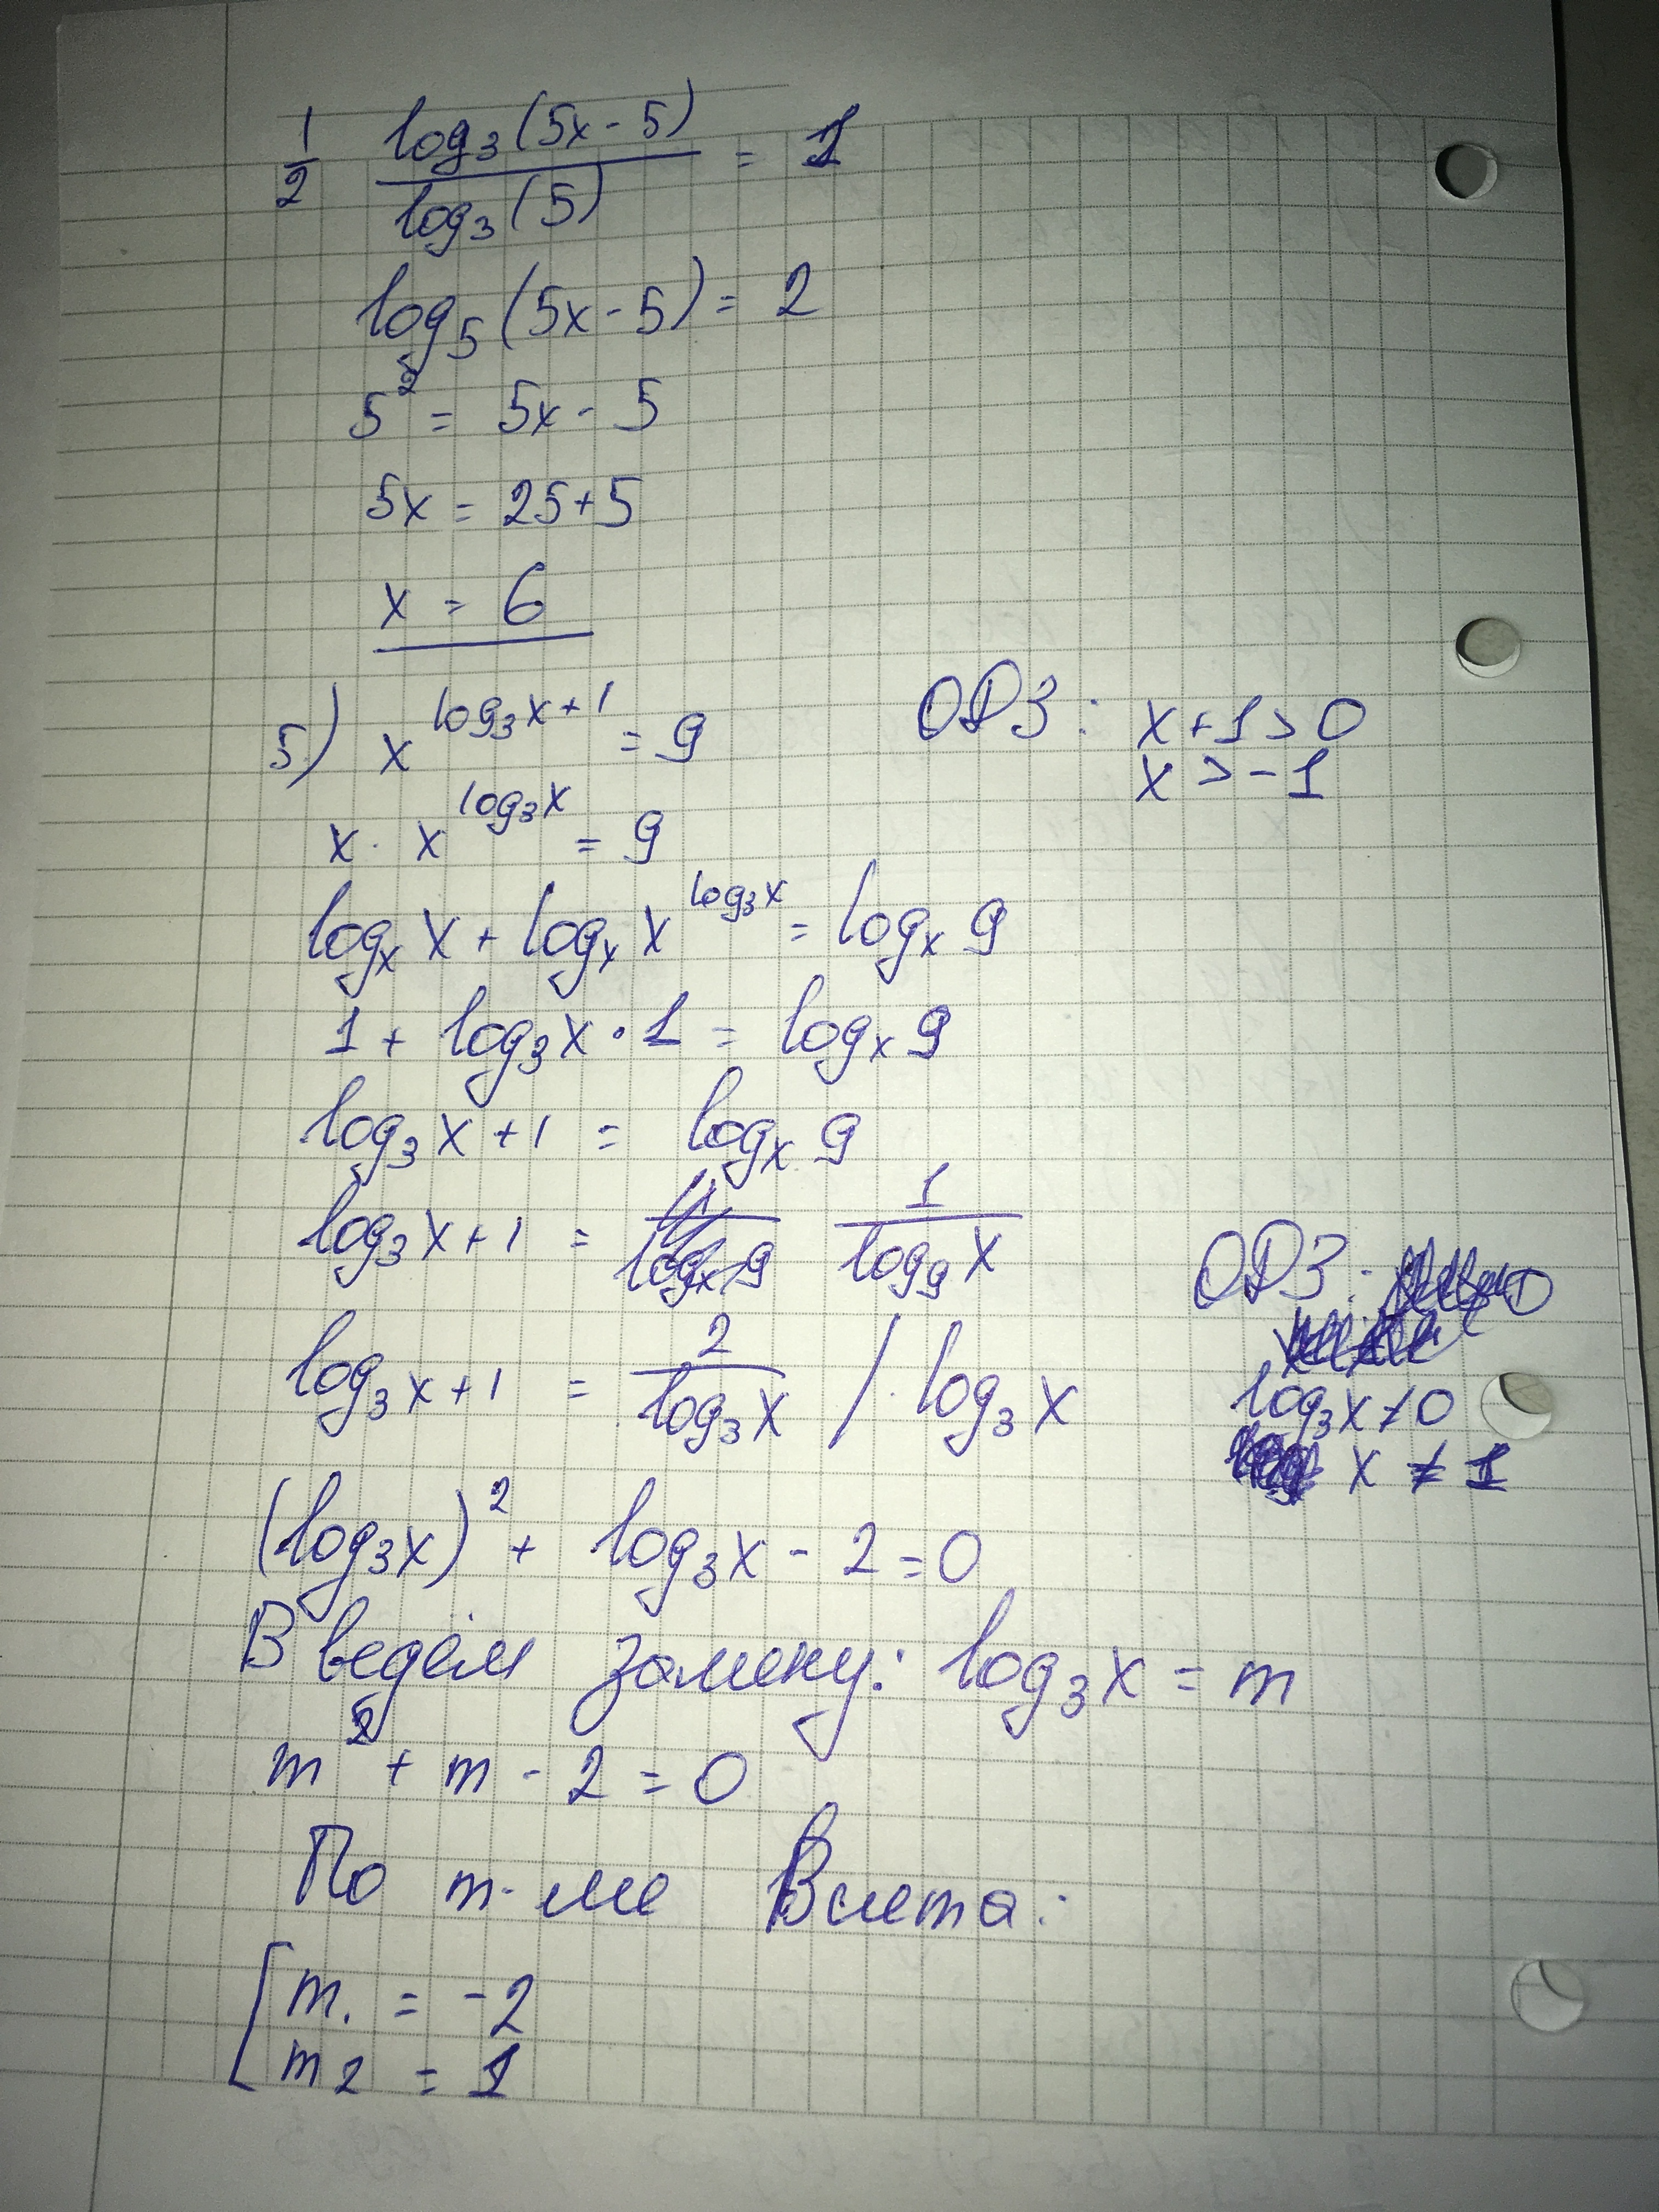 1/2 log₃(5x-5)/log₃(5) = 1
log₅(5x-5) = 2
5² = 5x - 5
5x = 25+5
x = 6
5) x^(log₃x+1) = 9 ОДЗ: x+1>0
x > -1
x · x^(log₃x) = 9
logₓ x + logₓ x^(log₃x) = logₓ 9
1 + log₃x · 1 = logₓ 9
log₃x + 1 = logₓ 9
log₃x + 1 = 1/log₉x ОДЗ:
log₃x + 1 = 2/log₃x / · log₃x
log₃x ≠ 0
x ≠ 1
(log₃x)² + log₃x - 2 = 0
Введём замену: log₃x = m
m² + m - 2 = 0
По т-ме Виета:
[ m₁ = -2
m₂ = 1